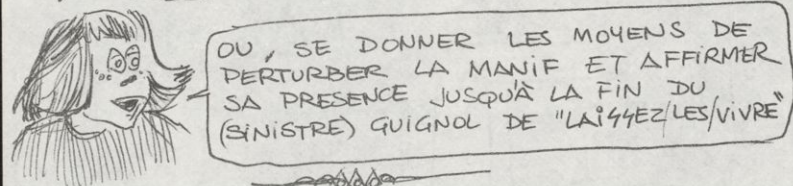 OU, SE DONNER LES MOYENS DE
PERTURBER LA MANIF ET AFFIRMER
SA PRESENCE JUSQU'À LA FIN DU
(SINISTRE) GUIGNOL DE "LAISSEZ/LES/VIVRE"